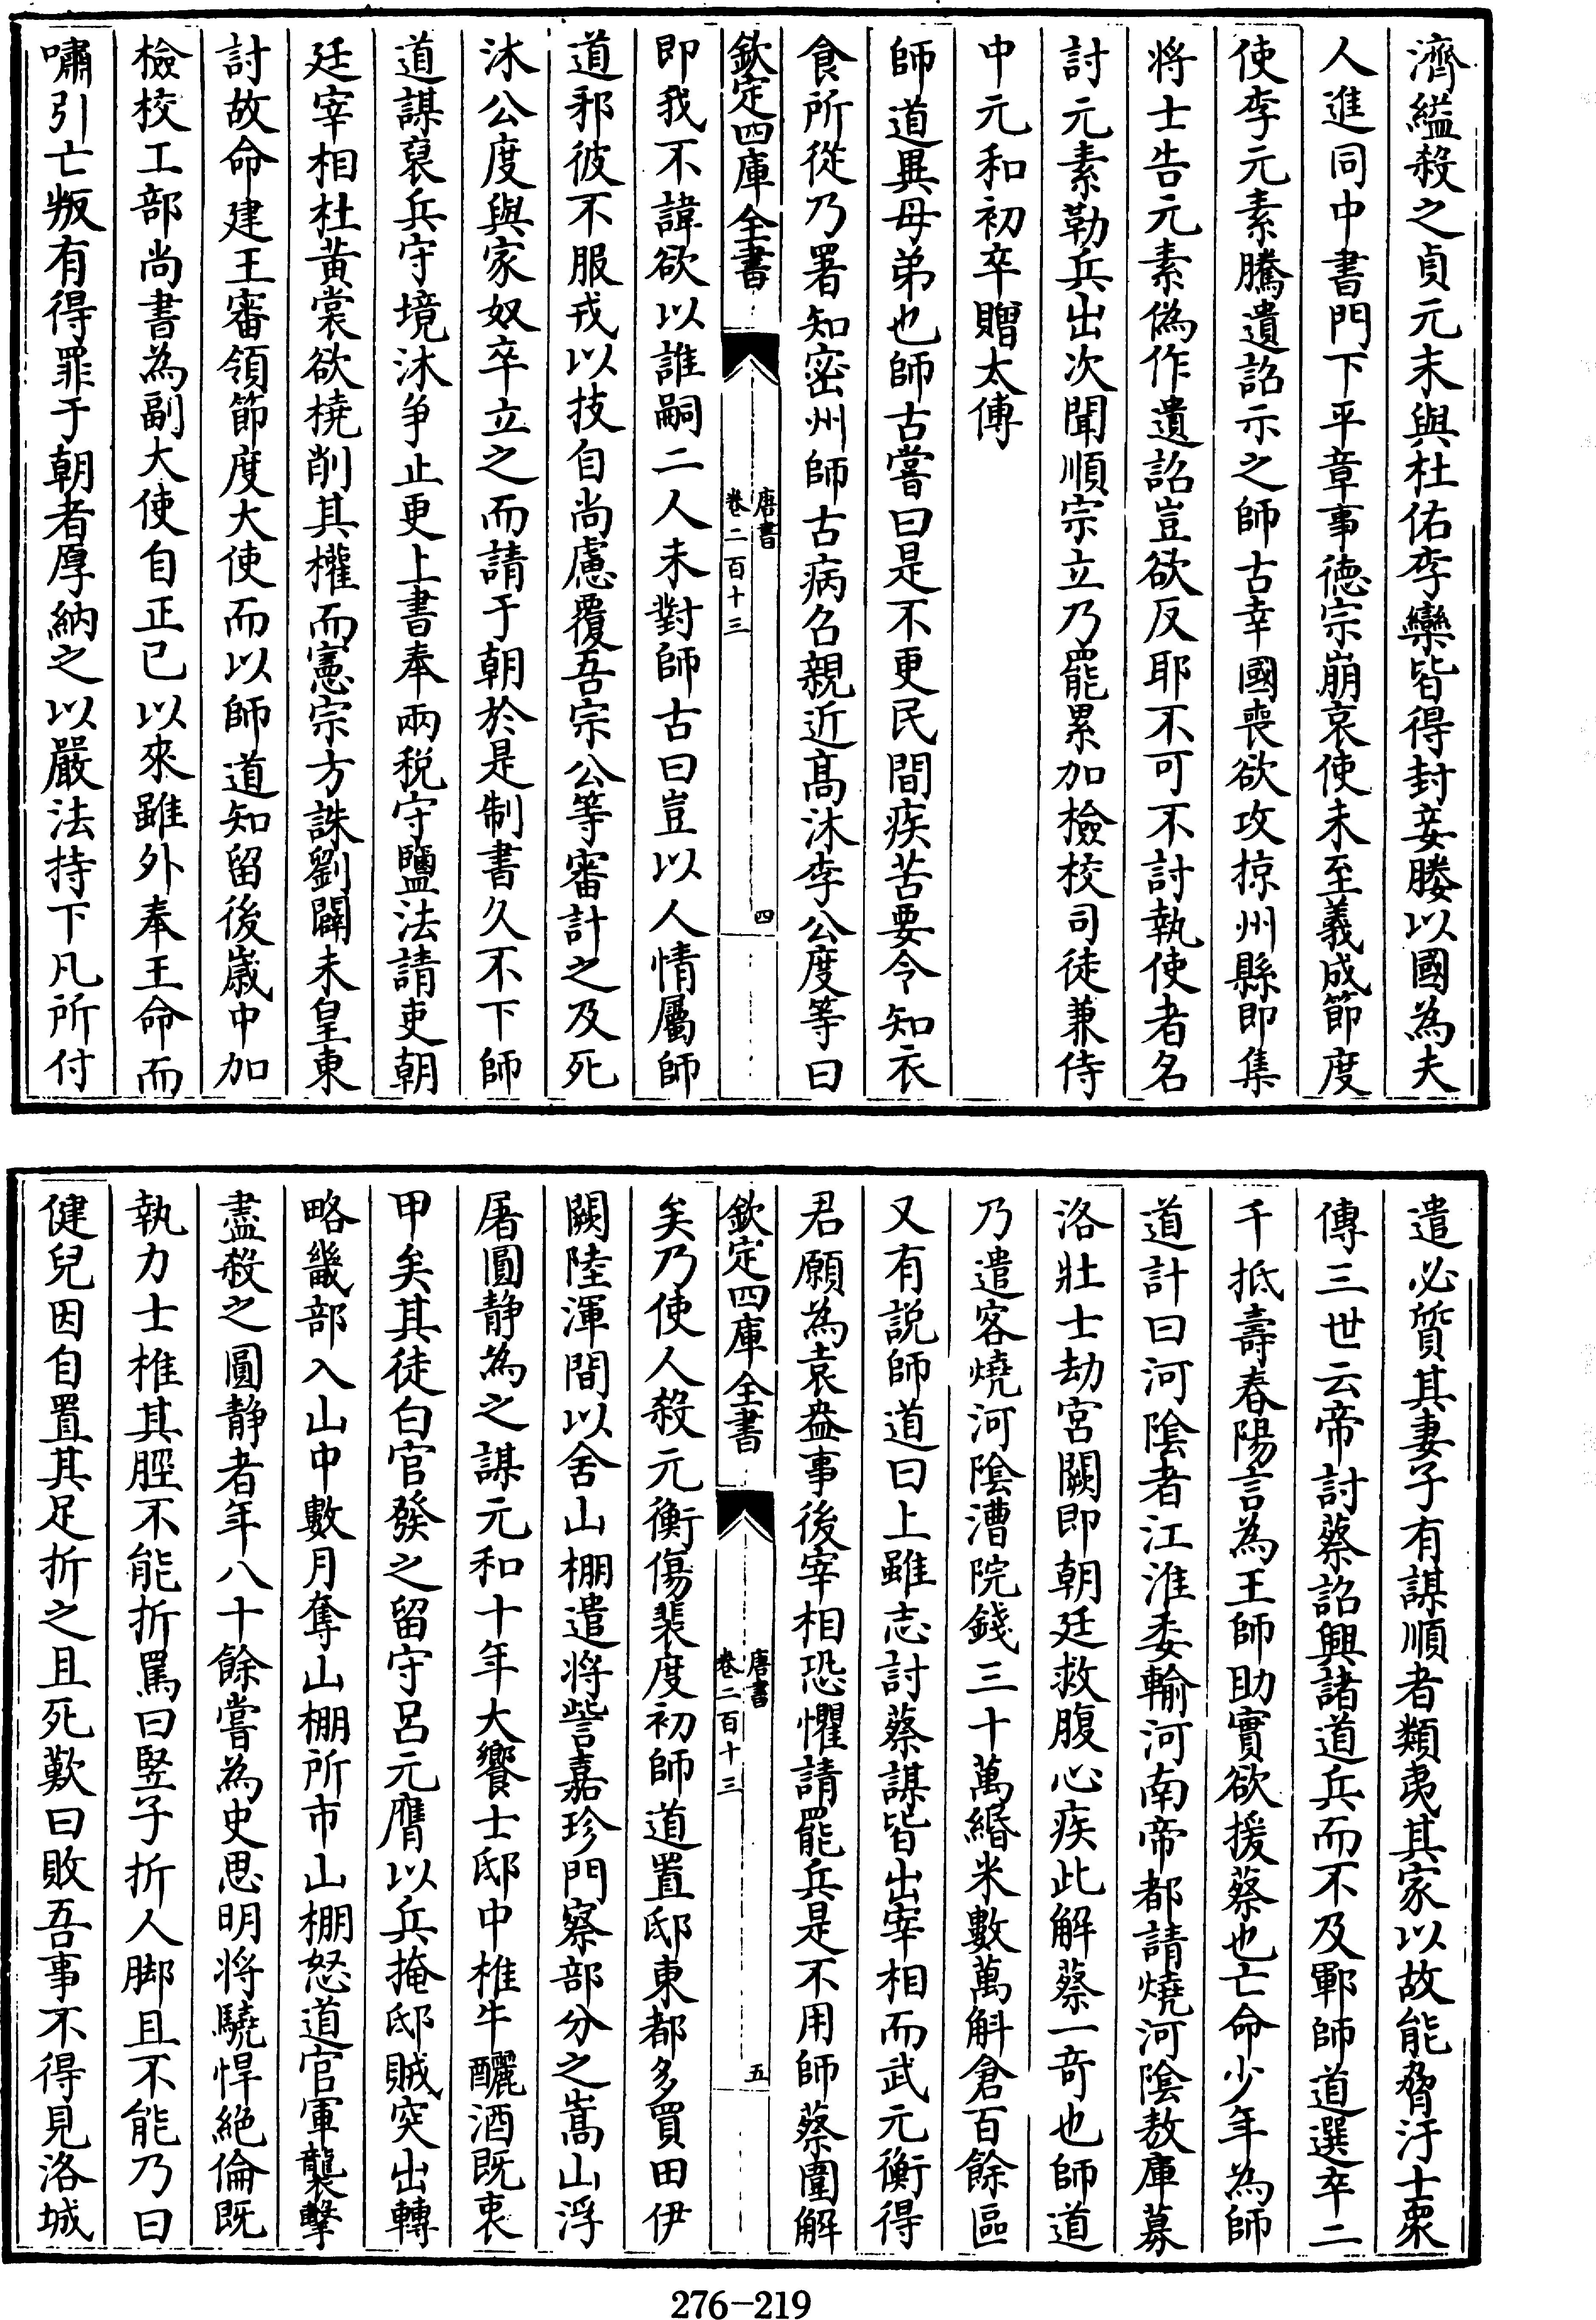 濟縊殺之貞元末與杜佑李欒皆得封妾媵以國為夫
人進同中書門下平章事德宗崩哀使未至義成節度
使李元素騰遺詔示之師古幸國喪欲攻掠州縣即集
將士告元素偽作遺詔豈欲反耶不可不討執使者名
討元素勒兵出次聞順宗立乃罷累加檢校司徒兼侍
中元和初卒贈太傅
師道異母弟也師古嘗曰是不更民間疾苦要令知衣
食所從乃署知密州師古病召親近髙沐李公度等曰
欽定四庫全書
唐書
卷二百十三
四
即我不諱欲以誰嗣二人未對師古曰豈以人情屬師
道邪彼不服戎以技自尚慮覆吾宗公等審計之及死
沐公度與家奴卒立之而請于朝於是制書久不下師
道謀裒兵守境沐爭止更上書奉兩税守鹽法請吏朝
廷宰相杜黄裳欲橈削其權而憲宗方誅劉闢未皇東
討故命建王審領節度大使而以師道知留後嵗中加
檢校工部尚書為副大使自正已以來雖外奉王命而
嘯引亡叛有得罪于朝者厚納之以嚴法持下凡所付
遣必質其妻子有謀順者類夷其家以故能脅汙士衆
傳三世云帝討蔡詔興諸道兵而不及鄆師道選卒二
千抵壽春陽言為王師助實欲援蔡也亡命少年為師
道計曰河隂者江淮委輸河南帝都請燒河隂敖庫募
洛壯士劫宮闕即朝廷救腹心疾此解蔡一竒也師道
乃遣客燒河隂漕院錢三十萬緡米數萬斛倉百餘區
又有説師道曰上雖志討蔡謀皆出宰相而武元衡得
君願為袁盎事後宰相恐懼請罷兵是不用師蔡圍解
欽定四庫全書
唐書
卷二百十三
五
矣乃使人殺元衡傷裴度初師道置邸東都多買田伊
闕陸渾間以舍山棚遣將訾嘉珍門察部分之嵩山浮
屠圓静為之謀元和十年大饗士邸中椎牛釃酒既衷
甲矣其徒白官發之留守呂元膺以兵掩邸賊突出轉
略畿部入山中數月奪山棚所市山棚怒道官軍襲擊
盡殺之圓静者年八十餘嘗為史思明將驍悍絶倫既
執力士椎其脛不能折罵曰竪子折人脚且不能乃曰
健兒因自置其足折之且死歎曰敗吾事不得見洛城
276-219